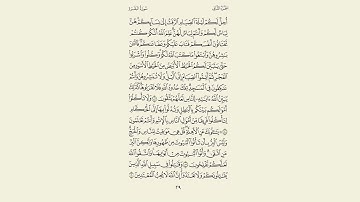 الجزء الثاني سورة البقرة
أُحِلَّ لَكُمْ لَيْلَةَ ٱلصِّيَامِ ٱلرَّفَثُ إِلَىٰ نِسَآئِكُمْ هُنَّ
لِبَاسٌ لَّكُمْ وَأَنتُمْ لِبَاسٌ لَّهُنَّ عَلِمَ ٱللَّهُ أَنَّكُمْ كُنتُمْ
تَخْتَانُونَ أَنفُسَكُمْ فَتَابَ عَلَيْكُمْ وَعَفَا عَنكُمْ فَٱلْـَٰٔنَ
بَـٰشِرُوهُنَّ وَٱبْتَغُوا۟ مَا كَتَبَ ٱللَّهُ لَكُمْ وَكُلُوا۟ وَٱشْرَبُوا۟
حَتَّىٰ يَتَبَيَّنَ لَكُمُ ٱلْخَيْطُ ٱلْأَبْيَضُ مِنَ ٱلْخَيْطِ ٱلْأَسْوَدِ مِنَ
ٱلْفَجْرِ ثُمَّ أَتِمُّوا۟ ٱلصِّيَامَ إِلَى ٱلَّيْلِ وَلَا تُبَـٰشِرُوهُنَّ وَأَنتُمْ
عَـٰكِفُونَ فِى ٱلْمَسَـٰجِدِ تِلْكَ حُدُودُ ٱللَّهِ فَلَا تَقْرَبُوهَا كَذَٰلِكَ
يُبَيِّنُ ٱللَّهُ ءَايَـٰتِهِۦ لِلنَّاسِ لَعَلَّهُمْ يَتَّقُونَ ١٨٧ وَلَا تَأْكُلُوٓا۟
أَمْوَٰلَكُم بَيْنَكُم بِٱلْبَـٰطِلِ وَتُدْلُوا۟ بِهَآ إِلَى ٱلْحُكَّامِ
لِتَأْكُلُوا۟ فَرِيقًا مِّنْ أَمْوَٰلِ ٱلنَّاسِ بِٱلْإِثْمِ وَأَنتُمْ تَعْلَمُونَ
١٨٨ يَسْـَٔلُونَكَ عَنِ ٱلْأَهِلَّةِ قُلْ هِىَ مَوَٰقِيتُ لِلنَّاسِ وَٱلْحَجِّ
وَلَيْسَ ٱلْبِرُّ بِأَن تَأْتُوا۟ ٱلْبُيُوتَ مِن ظُهُورِهَا وَلَـٰكِنَّ ٱلْبِرَّ
مَنِ ٱتَّقَىٰ وَأْتُوا۟ ٱلْبُيُوتَ مِنْ أَبْوَٰبِهَا وَٱتَّقُوا۟ ٱللَّهَ
لَعَلَّكُمْ تُفْلِحُونَ ١٨٩ وَقَـٰتِلُوا۟ فِى سَبِيلِ ٱللَّهِ ٱلَّذِينَ
يُقَـٰتِلُونَكُمْ وَلَا تَعْتَدُوٓا۟ إِنَّ ٱللَّهَ لَا يُحِبُّ ٱلْمُعْتَدِينَ ١٩٠
٢٩